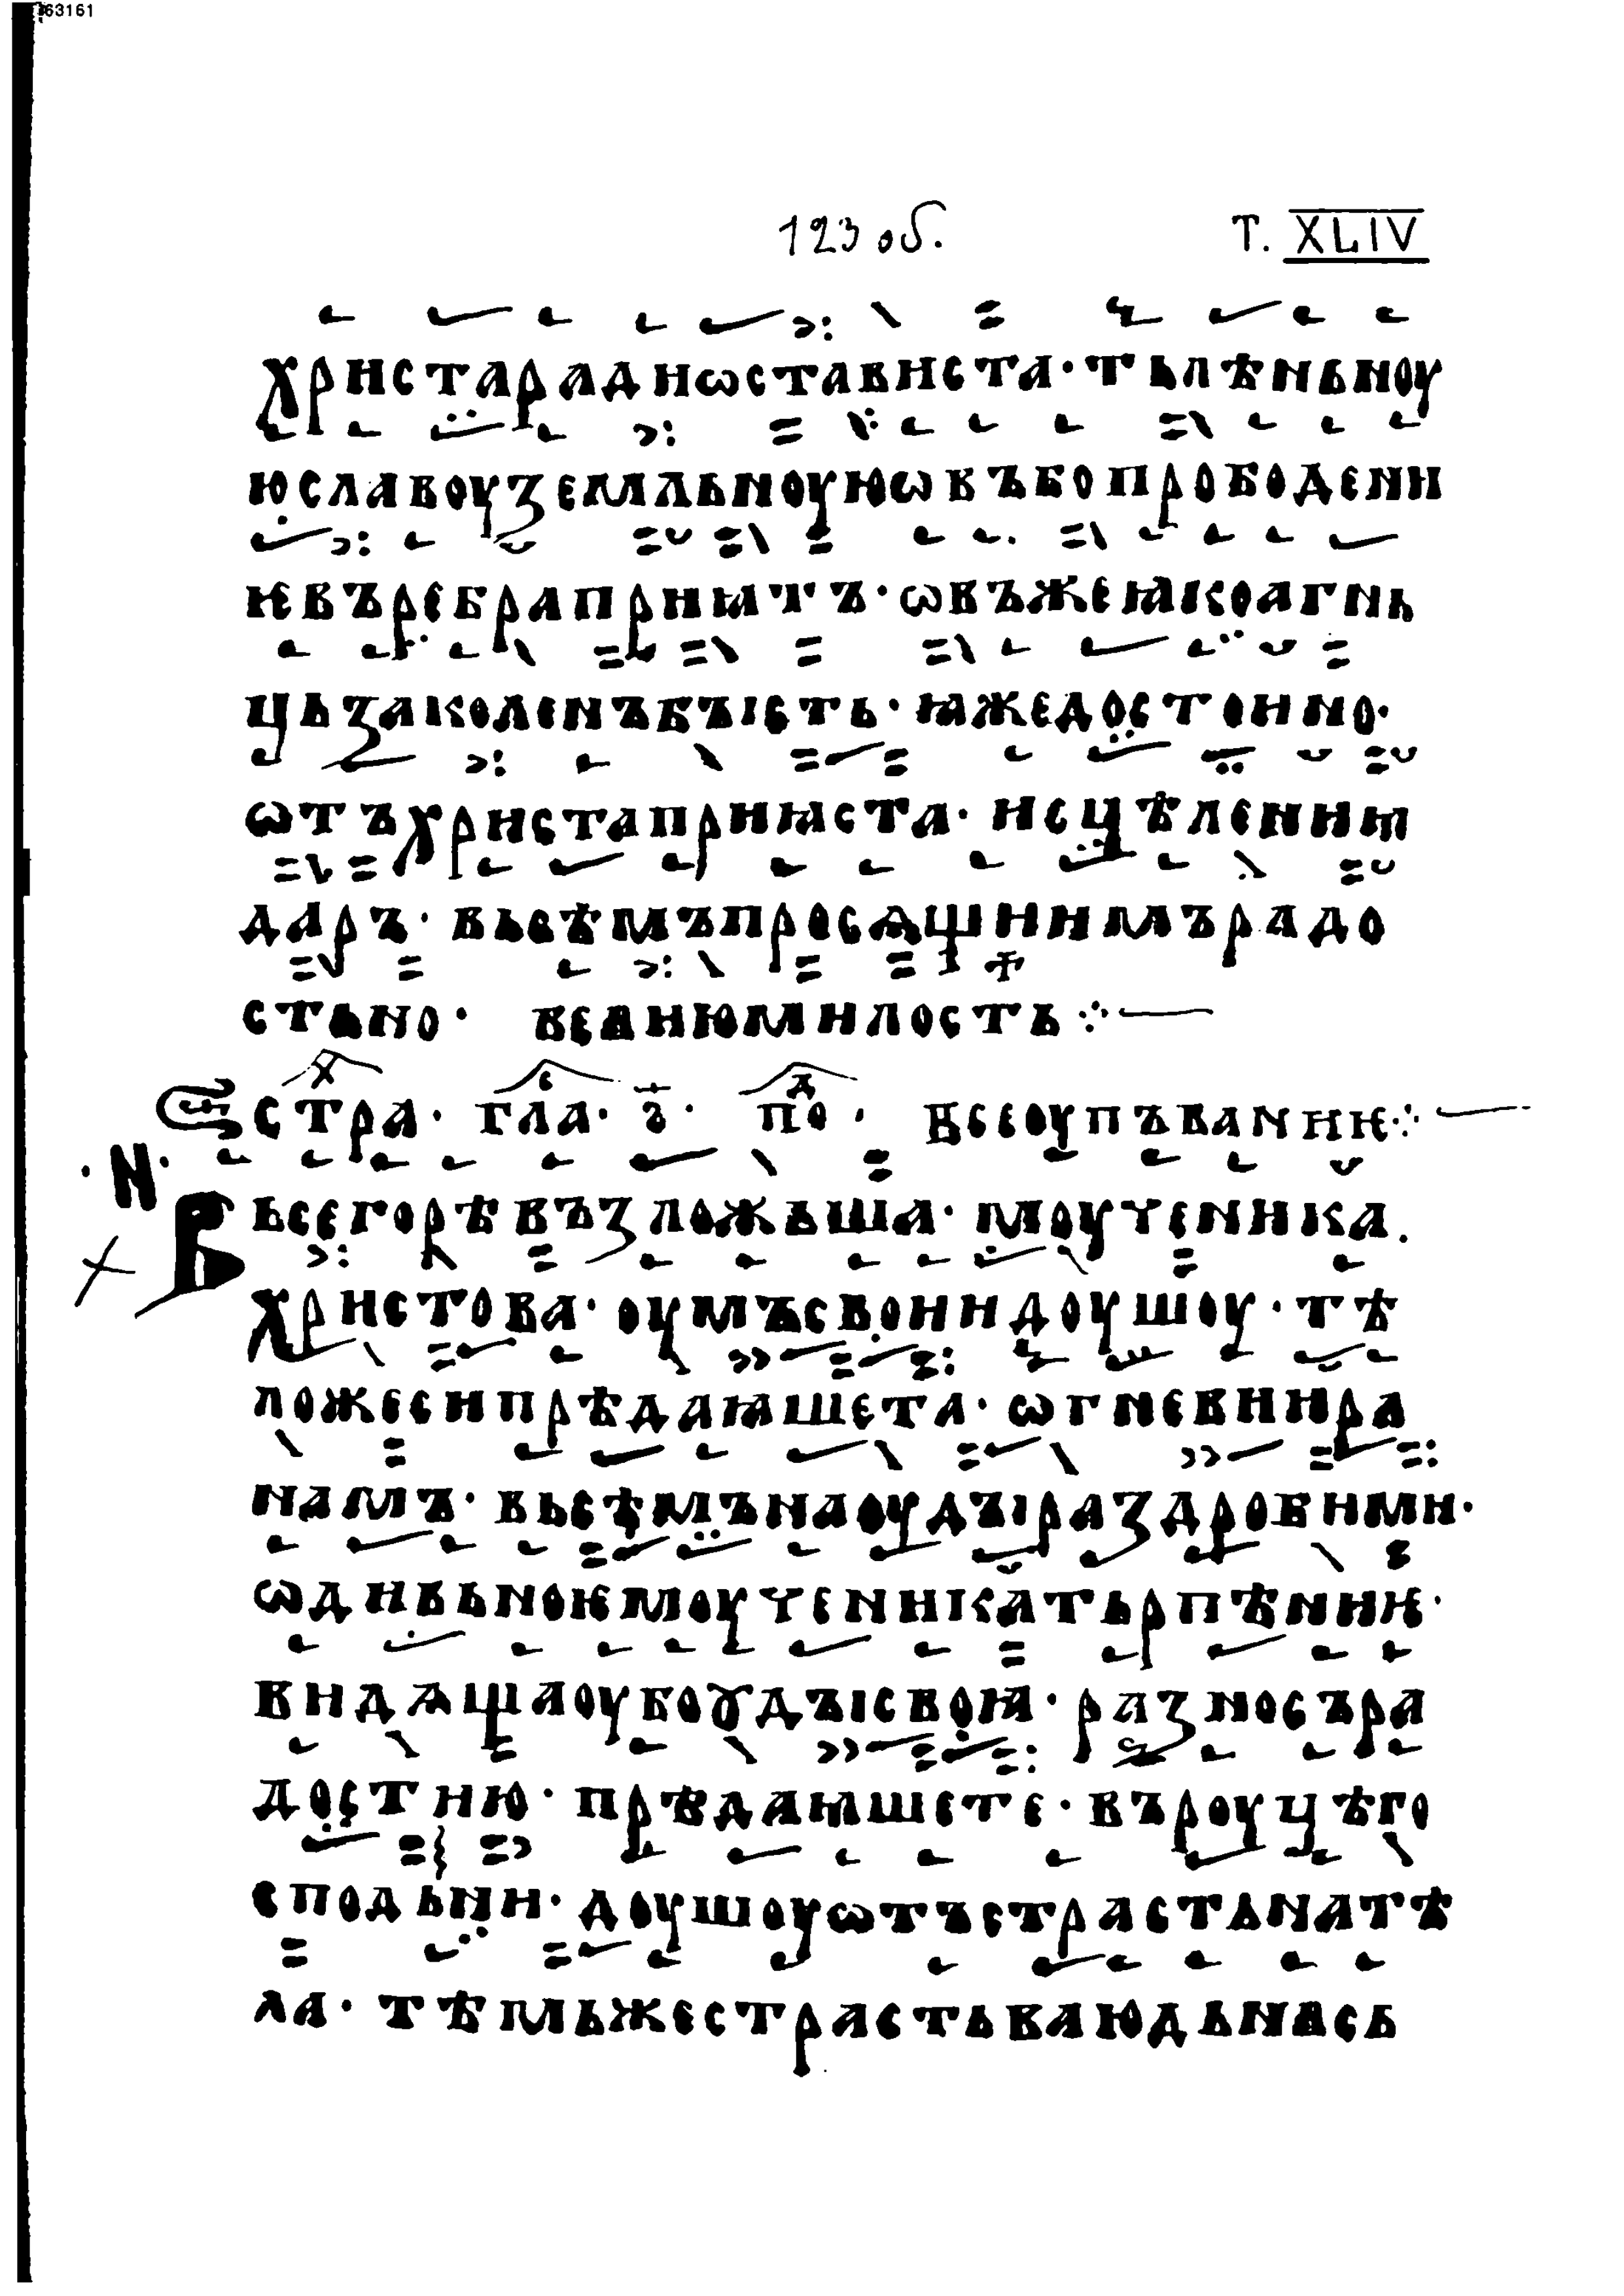 63161
123 об. Т. XLIV
христарадиѡстависта· тьлѣньноу
юславоуземльноуюѡвъбопрободени
ѥвъребраприꙗтъ· ѡвъжеꙗкоагнь
цьзаколенъбъість· ꙗжедостоино·
ѡтъхристаприꙗста· исцѣлениꙗ
даръ· вьсѣмъпросѧщиимърадо
стьно· велиюмилость ⁘
стрⷯа· глⷭа· з҃· поⷣ· всеоупъваниѥ ⁘
·N·
Вьсегорѣвъзложьша· моученика.
христова· оумъсвоиидоушоу· тѣ
ложесипрѣдаꙗшета· ѡгневиира
намъ· вьсѣмънаоудъіраздробими·
ѡдивьноѥмоученикатьрпѣниѥ·
видѧщаоубоꙋдъісвоꙗ· разносъра
достию· прѣдаꙗшете· въроуцѣго
сподьни· доушоуѡтъстрастьнатѣ
ла· тѣмьжестрастьваюдьньсь